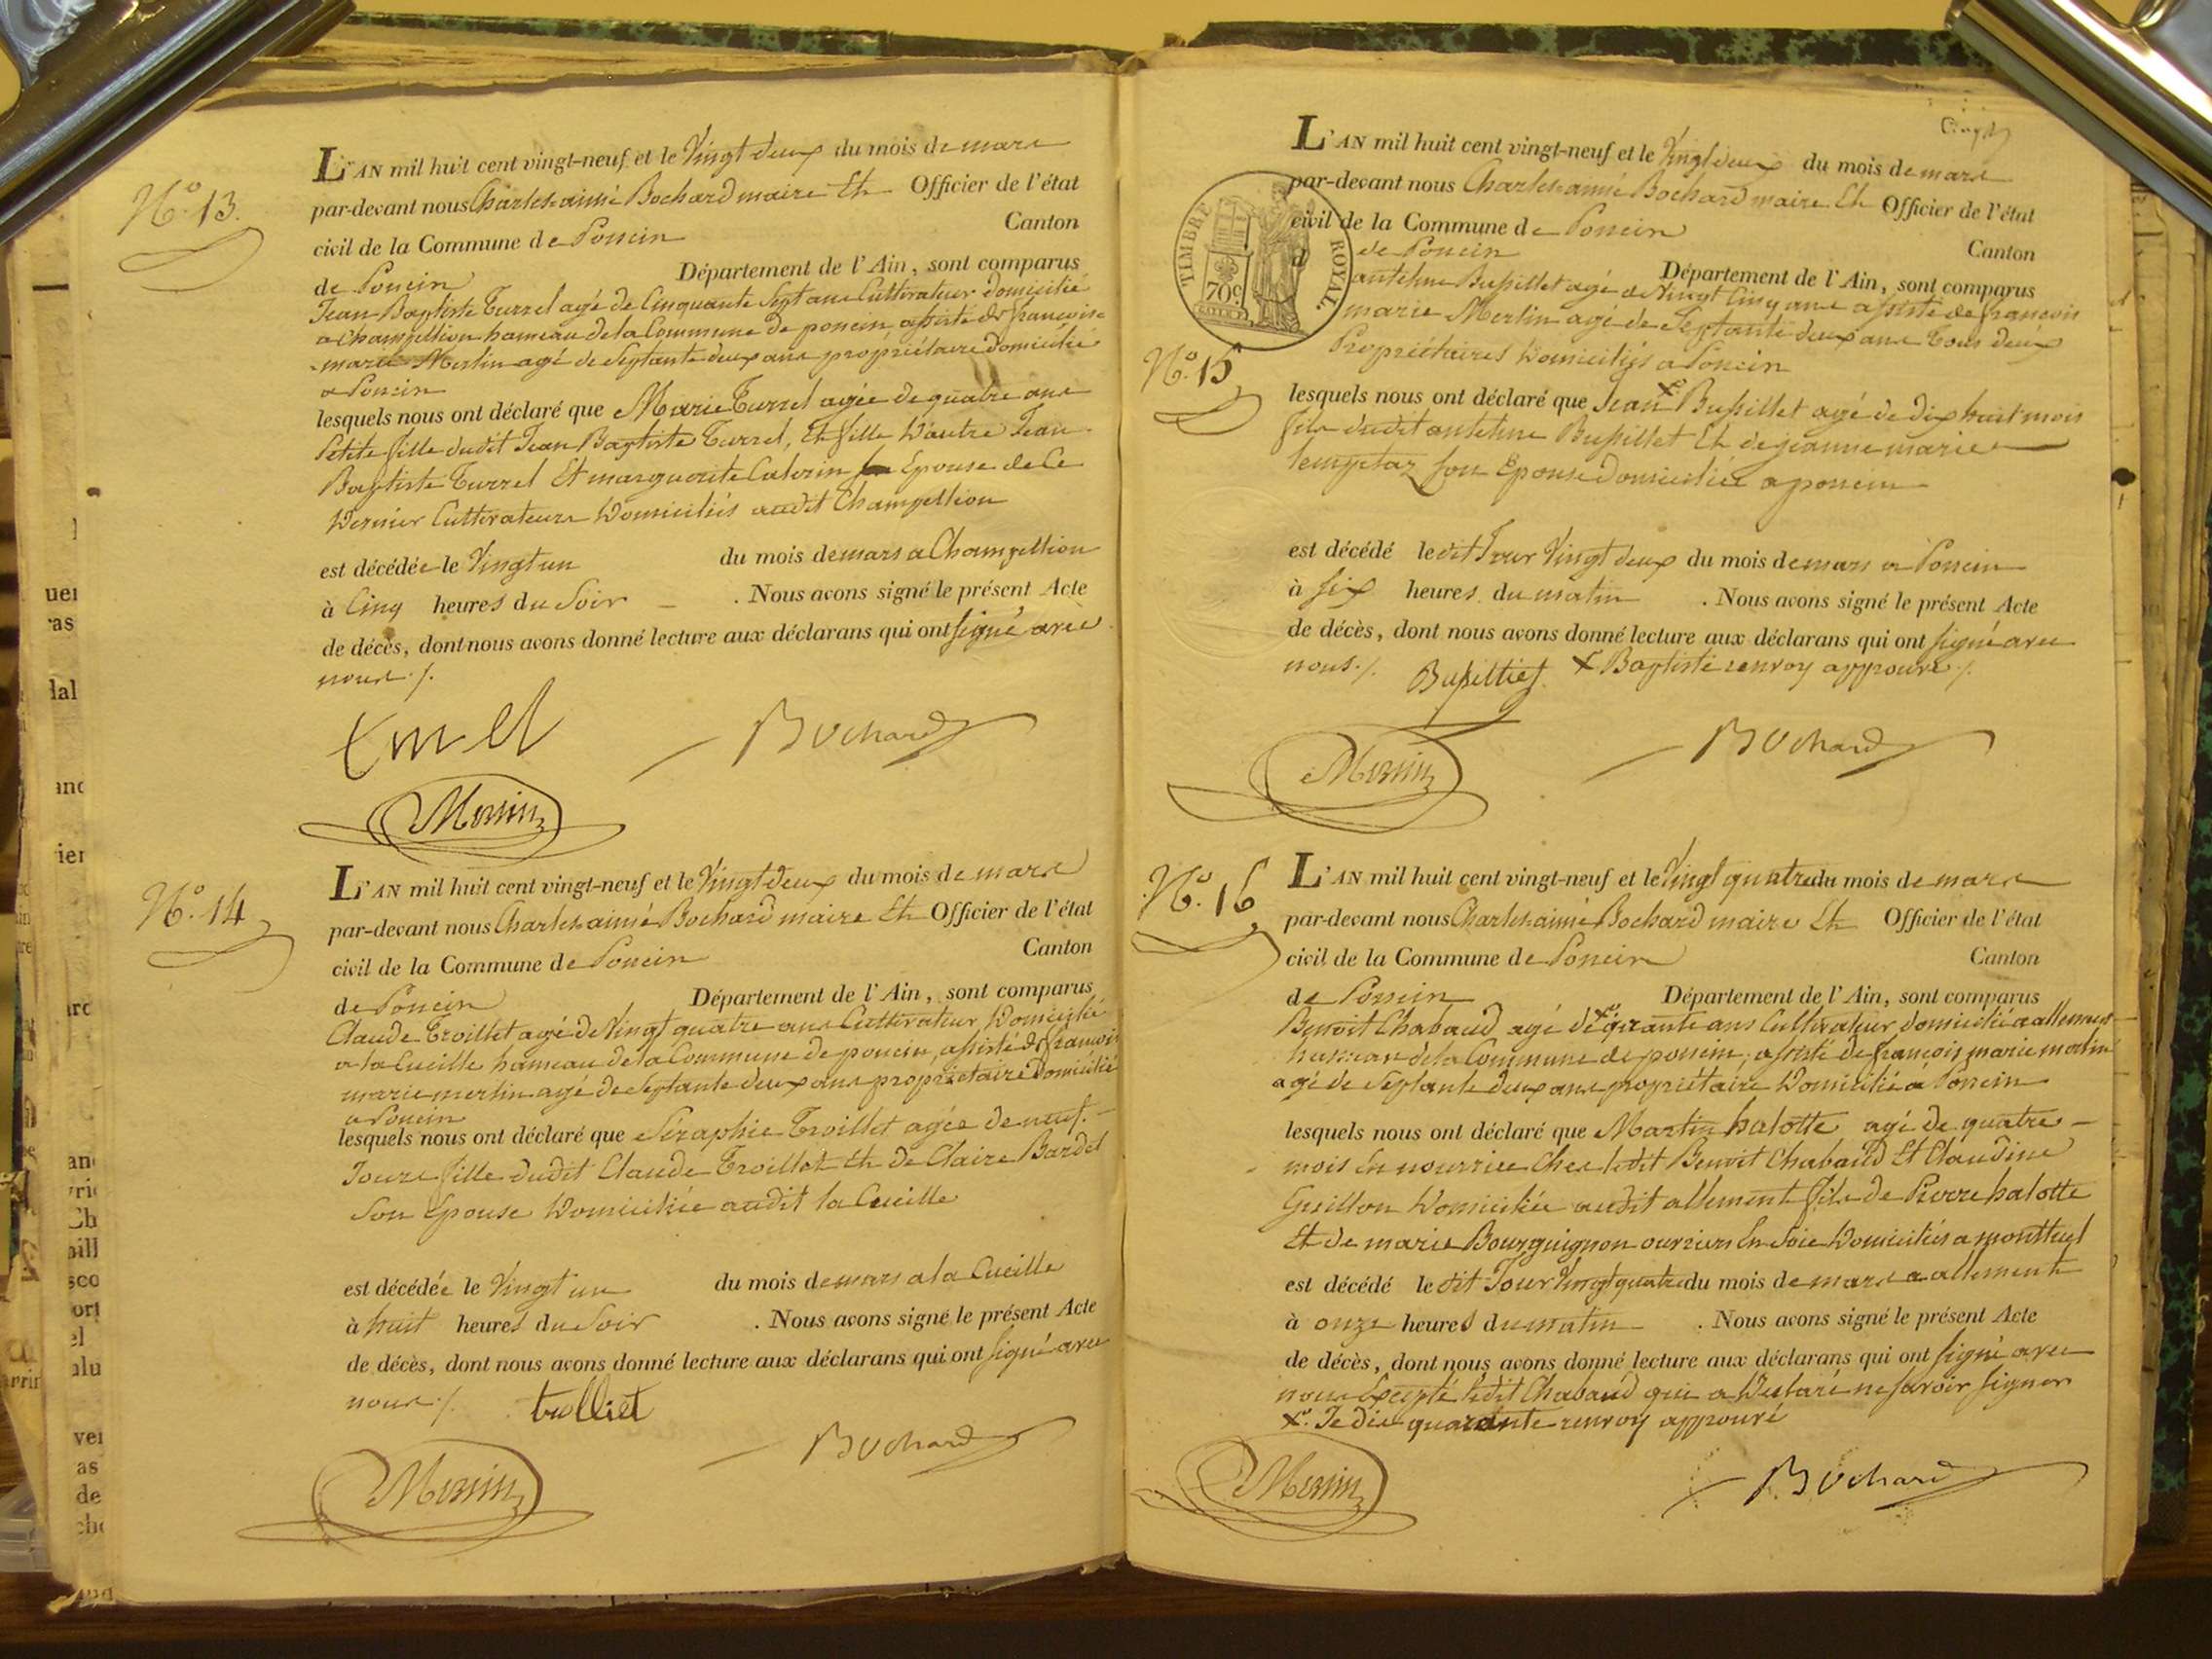 N.º 13.
L'AN mil huit cent vingt-neuf et le Vingt deux du mois de mars
par-devant nous Charles-aimé Bochard maire Et Officier de l'état
civil de la Commune de Poncin Canton
de Poncin Département de l'Ain, sont comparus
Jean-Baptiste Turrel agé de Cinquante Sept ans Cultivateur domicilié
a Champellion hameau de la Commune de poncin, assisté de francois
marie Merlin agé de Septante deux ans propriétaire domicilié
a Poncin
lesquels nous ont déclaré que Marie Turrel agée de quatre ans
Petite fille dudit Jean Baptiste Turrel, Et fille D'autre Jean
Baptiste Turrel Et marguerite Epouse de Ce
Dernier Cultivateurs Domiciliés audit Champellion
est décédée le Vingt un du mois de mars a Champellion
à Cinq heures du Soir . Nous avons signé le présent Acte
de décès, dont nous avons donné lecture aux déclarans qui ont signé avec
nous ./.
Bochard
Merlin
N.º 14
L'AN mil huit cent vingt-neuf et le Vingt deux du mois de mars
par-devant nous Charles-aimé Bochard maire Et Officier de l'état
civil de la Commune de Poncin Canton
de Poncin Département de l'Ain, sont comparus
Claude Troillet agé de Vingt quatre ans Cultivateur, Domicilié
a la Cueille hameau de la Commune de poncin, assisté de francois
marie merlin agé de Septante deux ans propriétaire Domicilié
a Poncin
lesquels nous ont déclaré que Séraphie Troillet agée de neuf
Jours fille dudit Claude Troillet Et de Claire Bardet
Son Epouse Domiciliée audit la Cueille
est décédée le Vingt un du mois de mars a la Cueille
à huit heures du Soir . Nous avons signé le présent Acte
de décès, dont nous avons donné lecture aux déclarans qui ont signé avec
nous ./. trolliet
Bochard
Merlin
L'AN mil huit cent vingt-neuf et le Vingt deux du mois de mars
par-devant nous Charles-aimé Bochard maire Et Officier de l'état
civil de la Commune de Poncin
d de Poncin Canton
TIMBRE ROYAL
70c
Département de l'Ain, sont comparus
antelme Bussillet agé de Vingt Cinq ans assisté de francois
marie Merlin agé de Septante deux ans Tous deux
Propriétaires Domiciliés a Poncin
N.º 15
lesquels nous ont déclaré que Jean X Bussillet agé de dix huit mois
fils dudit antelme Bussillet Et de jeanne marie
son Epouse Domiciliée a poncin
est décédé ledit Jour Vingt deux du mois de mars a Poncin
à six heures du matin . Nous avons signé le présent Acte
de décès, dont nous avons donné lecture aux déclarans qui ont signé avec
nous ./. Bussilliet X Baptiste renvoy approuvé ./.
Bochard
Merlin
N.º 16
L'AN mil huit cent vingt-neuf et le Vingt quatre du mois de mars
par-devant nous Charles-aimé Bochard maire Et Officier de l'état
civil de la Commune de Poncin Canton
de Poncin Département de l'Ain, sont comparus
Benoit Chabaud agé de X ans Cultivateur domicilié a allement
hameau de la Commune de poncin, assisté de francois marie merlin
agé de Septante deux ans propriétaire Domicilié a Poncin
lesquels nous ont déclaré que Martin halotte agé de quatre
mois En nourrice Chez ledit Benoit Chabaud Et Claudine
Guillon Domiciliés audit allement fils de Pierre halotte
Et de marie Bourguignon ouvriers En Soie Domiciliés a montluel
est décédé ledit Jour Vingt quatre du mois de mars a allement
à onze heures du matin . Nous avons signé le présent Acte
de décès, dont nous avons donné lecture aux déclarans qui ont signé avec
nous Excepté ledit Chabaud qui a Déclaré ne savoir signer
X. Je dis quarante renvoy approuvé
Bochard
Merlin